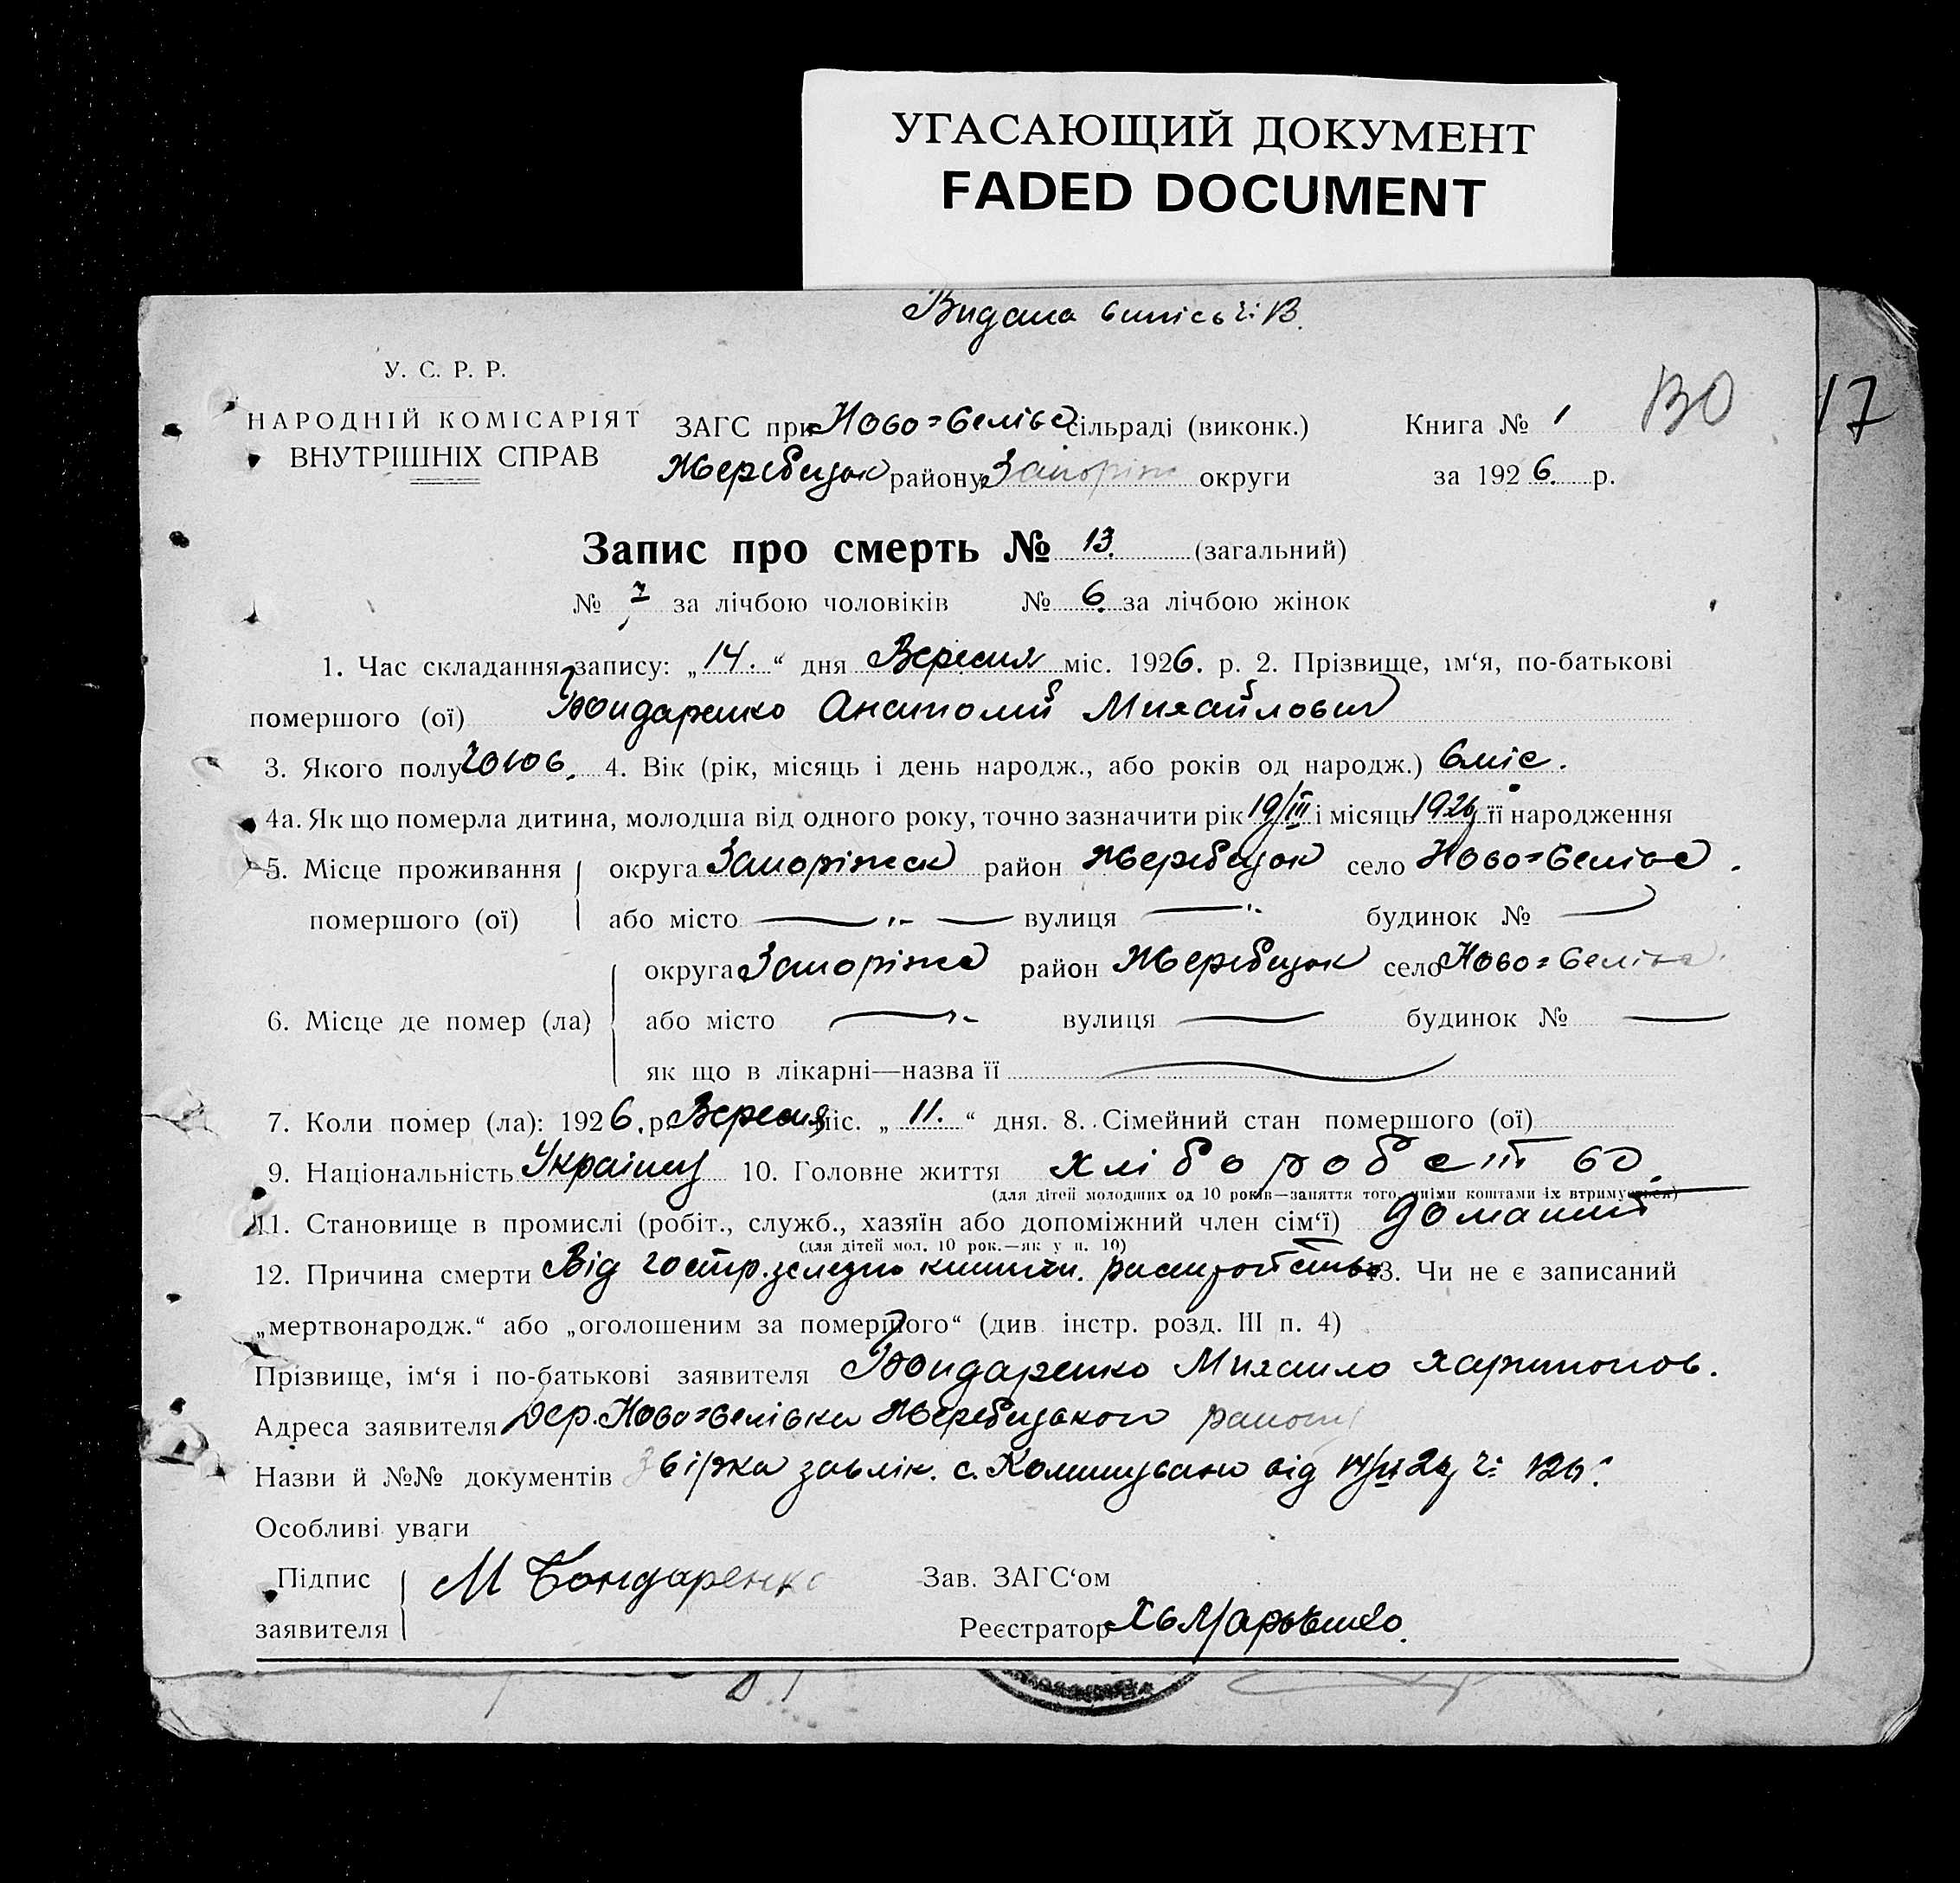 УГАСАЮЩИЙ ДОКУМЕНТ
FADED DOCUMENT
Видана випісь ч: 13.
У. С. Р. Р.
НАРОДНІЙ КОМІСАРІЯТ
ВНУТРІШНІХ СПРАВ
ЗАГС при Ново=Белівс сільраді (виконк.)
Жеребецьк району Запоріж округи
Книга № 1
за 1926. р.
130
17
Запис про смерть № 13. (загальний)
№ 7 за лічбою чоловіків № 6. за лічбою жінок
1. Час складання запису: „14.“ дня Вересня міс. 1926. р. 2. Прізвище, ім‘я, по-батькові
помершого (ої) Бондаренко Анатолій Михайлович
3. Якого полу чолов. 4. Вік (рік, місяць і день народж., або років од народж.) 6 міс.
4а. Як що померла дитина, молодша від одного року, точно зазначити рік 19/III і місяць 1926 її народження
5. Місце проживання помершого (ої) округа Запоріжськ район Жеребецьк село Ново=Белівс.
або місто вулиця будинок №
6. Місце де помер (ла) округа Запоріжс район Жеребецьк село Ново=Белівс.
або місто вулиця будинок №
як що в лікарні—назва її
7. Коли помер (ла): 1926. р. Вересня міс. „11.“ дня. 8. Сімейний стан помершого (ої)
9. Національність Українец 10. Головне життя хліборобство
(для дітей молодших од 10 років—заняття того, чиїми коштами їх втримується)
11. Становище в промислі (робіт., служб., хазяїн або допоміжний член сім‘ї)
(для дітей мол. 10 рок.—як у п. 10)
12. Причина смерти Від гостр. 13. Чи не є записаний
„мертвонародж.“ або „оголошеним за померлого“ (див. інстр. розд. III п. 4)
Прізвище, ім‘я і по-батькові заявителя Бондаренко Михайло Харитонов.
Адреса заявителя Дер. Ново=Белівка Жеребецького району
Назви й №№ документів завлік. с. від ч:
Особливі уваги
Підпис заявителя М Бондаренко
Зав. ЗАГС‘ом
Реєстратор